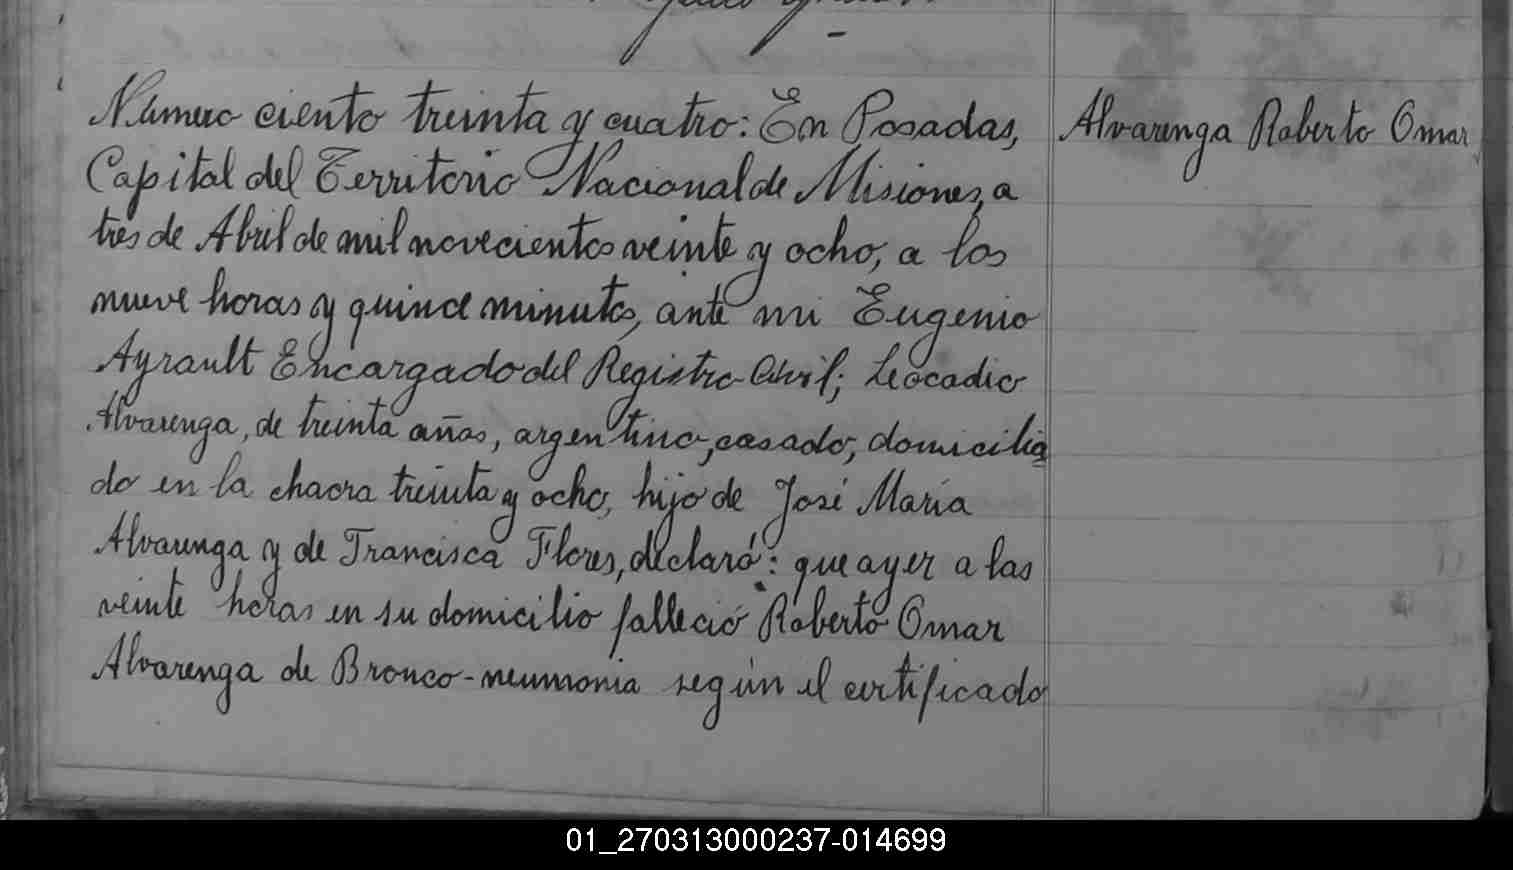 Número ciento treinta y cuatro: En Posadas,
Capital del Territorio Nacional de Misiones, a
tres de Abril de mil novecientos veinte y ocho, a las
nueve horas y quince minutos, ante mi Eugenio
Ayrault Encargado del Registro Civil; Leocadio
Alvarenga, de treinta años, argentino, casado, domicilia
do en la chacra treinta y ocho, hijo de José María
Alvarenga y de Francisca Flores, declaró: que ayer a las
veinte horas en su domicilio falleció Roberto Omar
Alvarenga de Bronco-neumonia según el certificado
Alvarenga Roberto Omar
01_270313000237-014699